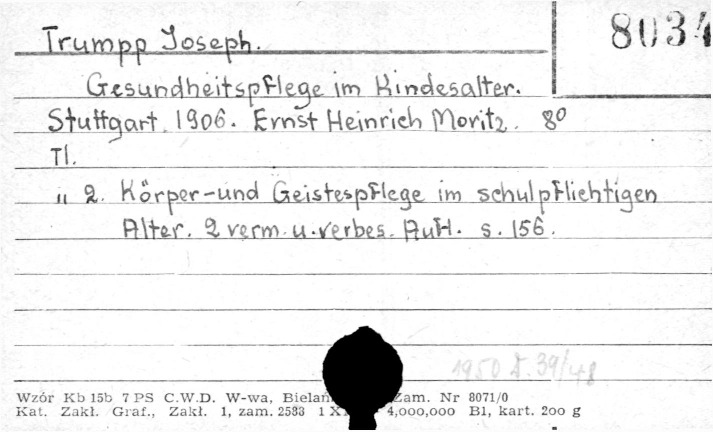 Trumpp Joseph. 8034
Gesundheitspflege im Kindesalter.
Stuttgart, 1906. Ernst Heinrich Moritz. 8⁰
Tl.
" 2. Körper-und Geistespflege im schulpflichtigen
Alter. 2 verm. u. verbes. Aufl. s. 156.
1950 D. 39/48
Wzór Kb 15b 7 PS C.W.D. W-wa, Zam. Nr 8071/0
Kat. Zakł. Graf., Zakł. 1, zam. 2583 4,000,000 B1, kart. 200 g